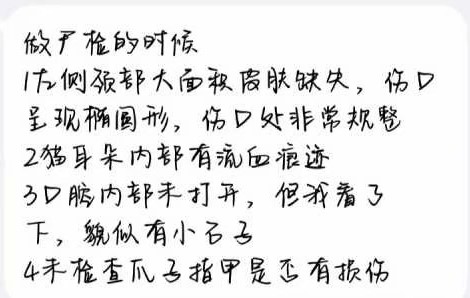 做尸检的时候
1左侧颈部大面积皮肤缺失，伤口
呈现椭圆形，伤口处非常规整
2猫耳朵内部有流血痕迹
3口腔内部未打开，但我看了
下，貌似有小石子
4未检查爪子指甲是否有损伤